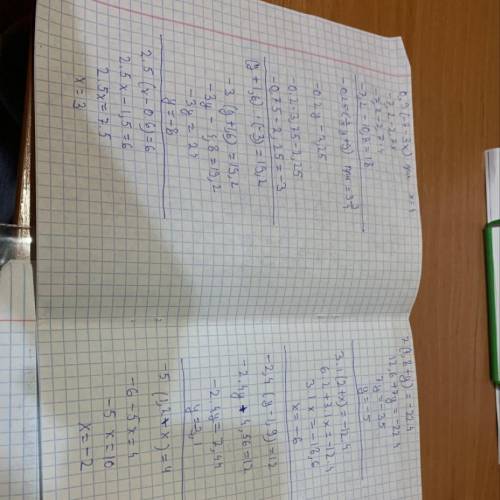 -7,2-2,7x
-7,2-2,7·4
-7,2-10,8=18
-0,2y-2,25
-0,2·3,75-2,25
-0,75-2,25=-3
(y+1,6)·(-3)=19,2
-3(y+1,6)=19,2
-3y-4,8=19,2
-3y=24
y=-8
2,5(x-0,6)=6
2,5x-1,5=6
2,5x=7,5
x=3
7(1,8+y)=-22,4
12,6+7y=-22,4
7y=-35
y=-5
3,1(2+x)=-12,4
6,2+3,1x=-12,4
3,1x=-18,6
x=-6
-2,4(y-1,9)=12
-2,4y+4,56=12
-2,4y=7,44
y=-3,1
-5(1,2+x)=4
-6-5x=4
-5x=10
x=-2